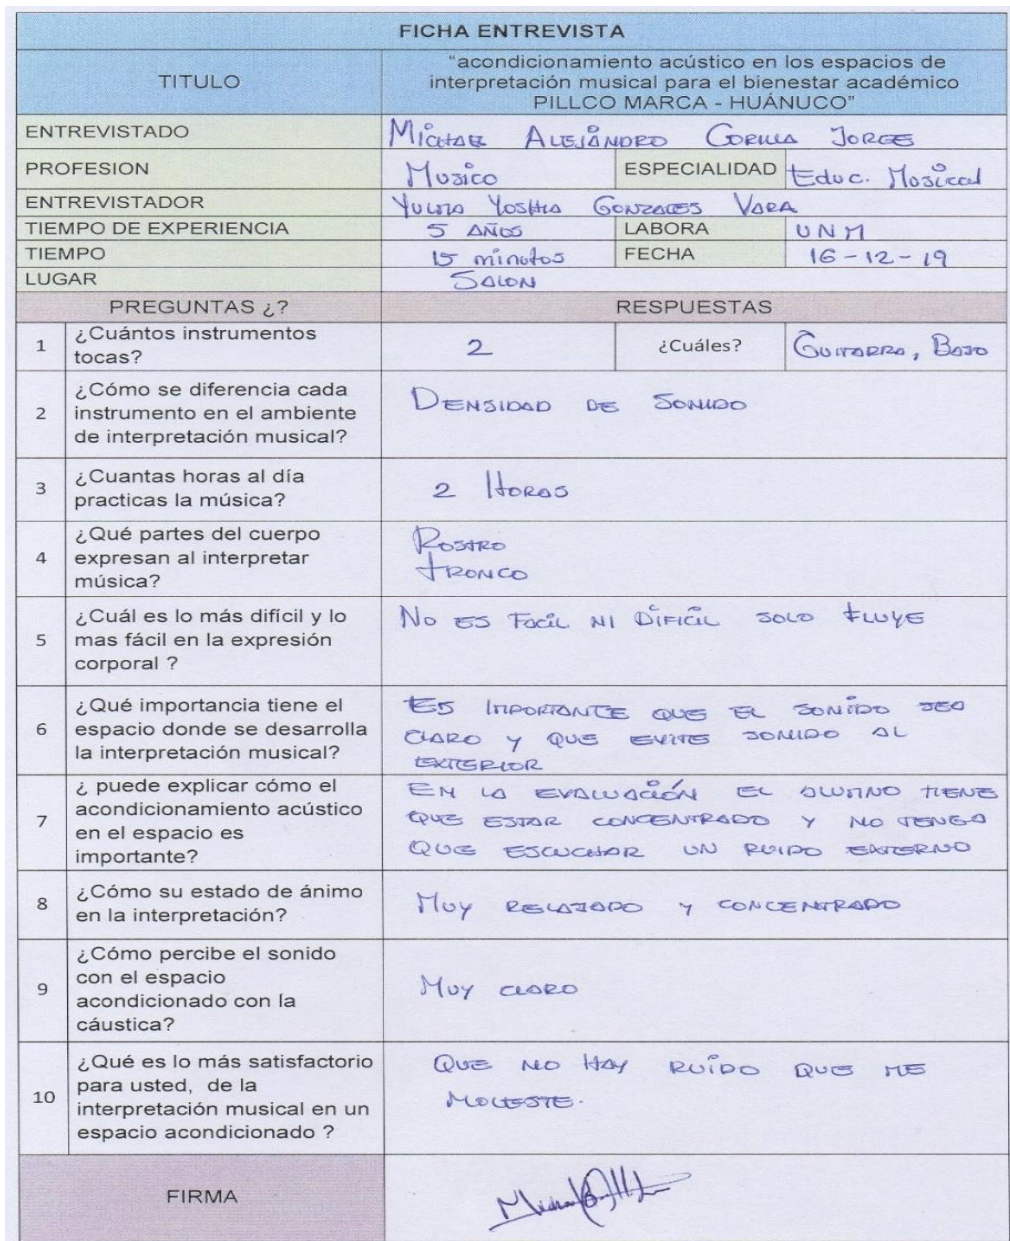 FICHA ENTREVISTA
TITULO
"acondicionamiento acústico en los espacios de
interpretación musical para el bienestar académico
PILLCO MARCA - HUÁNUCO"
ENTREVISTADO
ALEJANDRO JORGE
PROFESION
Musico
ESPECIALIDAD
Educ. Musical
ENTREVISTADOR
GONZALES VARA
TIEMPO DE EXPERIENCIA
5 AÑOS
LABORA
UNM
TIEMPO
15 minutos
FECHA
16-12-19
LUGAR
SALON
PREGUNTAS ¿?
RESPUESTAS
1
¿Cuántos instrumentos
tocas?
2
¿Cuáles?
GUITARRA, BAJO
2
¿Cómo se diferencia cada
instrumento en el ambiente
de interpretación musical?
DENSIDAD DE SONIDO
3
¿Cuantas horas al día
practicas la música?
2 HORAS
4
¿Qué partes del cuerpo
expresan al interpretar
música?
ROSTRO
TRONCO
5
¿Cuál es lo más difícil y lo
mas fácil en la expresión
corporal ?
NO ES FACIL NI DIFICIL SOLO FLUYE
6
¿Qué importancia tiene el
espacio donde se desarrolla
la interpretación musical?
ES IMPORTANTE QUE EL SONIDO SEA
CLARO Y QUE EVITE SONIDO AL
EXTERIOR
7
¿ puede explicar cómo el
acondicionamiento acústico
en el espacio es
importante?
EN LA EVALUACIÓN EL ALUMNO TIENE
QUE ESTAR CONCENTRADO Y NO TENGA
QUE ESCUCHAR UN RUIDO EXTERNO
8
¿Cómo su estado de ánimo
en la interpretación?
MUY RELAJADO Y CONCENTRADO
9
¿Cómo percibe el sonido
con el espacio
acondicionado con la
cáustica?
MUY CLARO
10
¿Qué es lo más satisfactorio
para usted, de la
interpretación musical en un
espacio acondicionado ?
QUE NO HAY RUIDO QUE ME
MOLESTE.
FIRMA